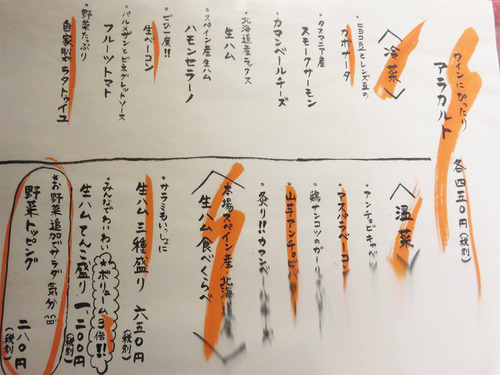 ワインにぴったり
アラカルト
各四五〇円(税別)
〈冷菜〉
ヒヨコ豆とレンズ豆の
ワポサータ
タスマニア産
スモークサーモン
カマンベールチーズ
北海道産ラックス
生ハム
スペイン産生ハム
ハモンセラーノ
ゼヒ一度!!
生ベーコン
バルサミコとビネグレットソース
フルーツトマト
野菜たっぷり
自家製ラタトゥイユ
〈温菜〉
アンチョビキャベツ
アスパラベーコン
鶏ナンコツのガーリ
山芋アンチョビ
炙り!!カマンベール
〈本場スペイン産 北海道
生ハム食べくらべ〉
サラミもいっしょに
生ハム三種盛り 六五〇円
(税別)
みんなでわいわい
生ハムてんこ盛り 一、二〇〇円
(税別)
★ボリューム3倍!!
★お野菜追加でサラダ気分
野菜トッピング 二八〇円
(税別)